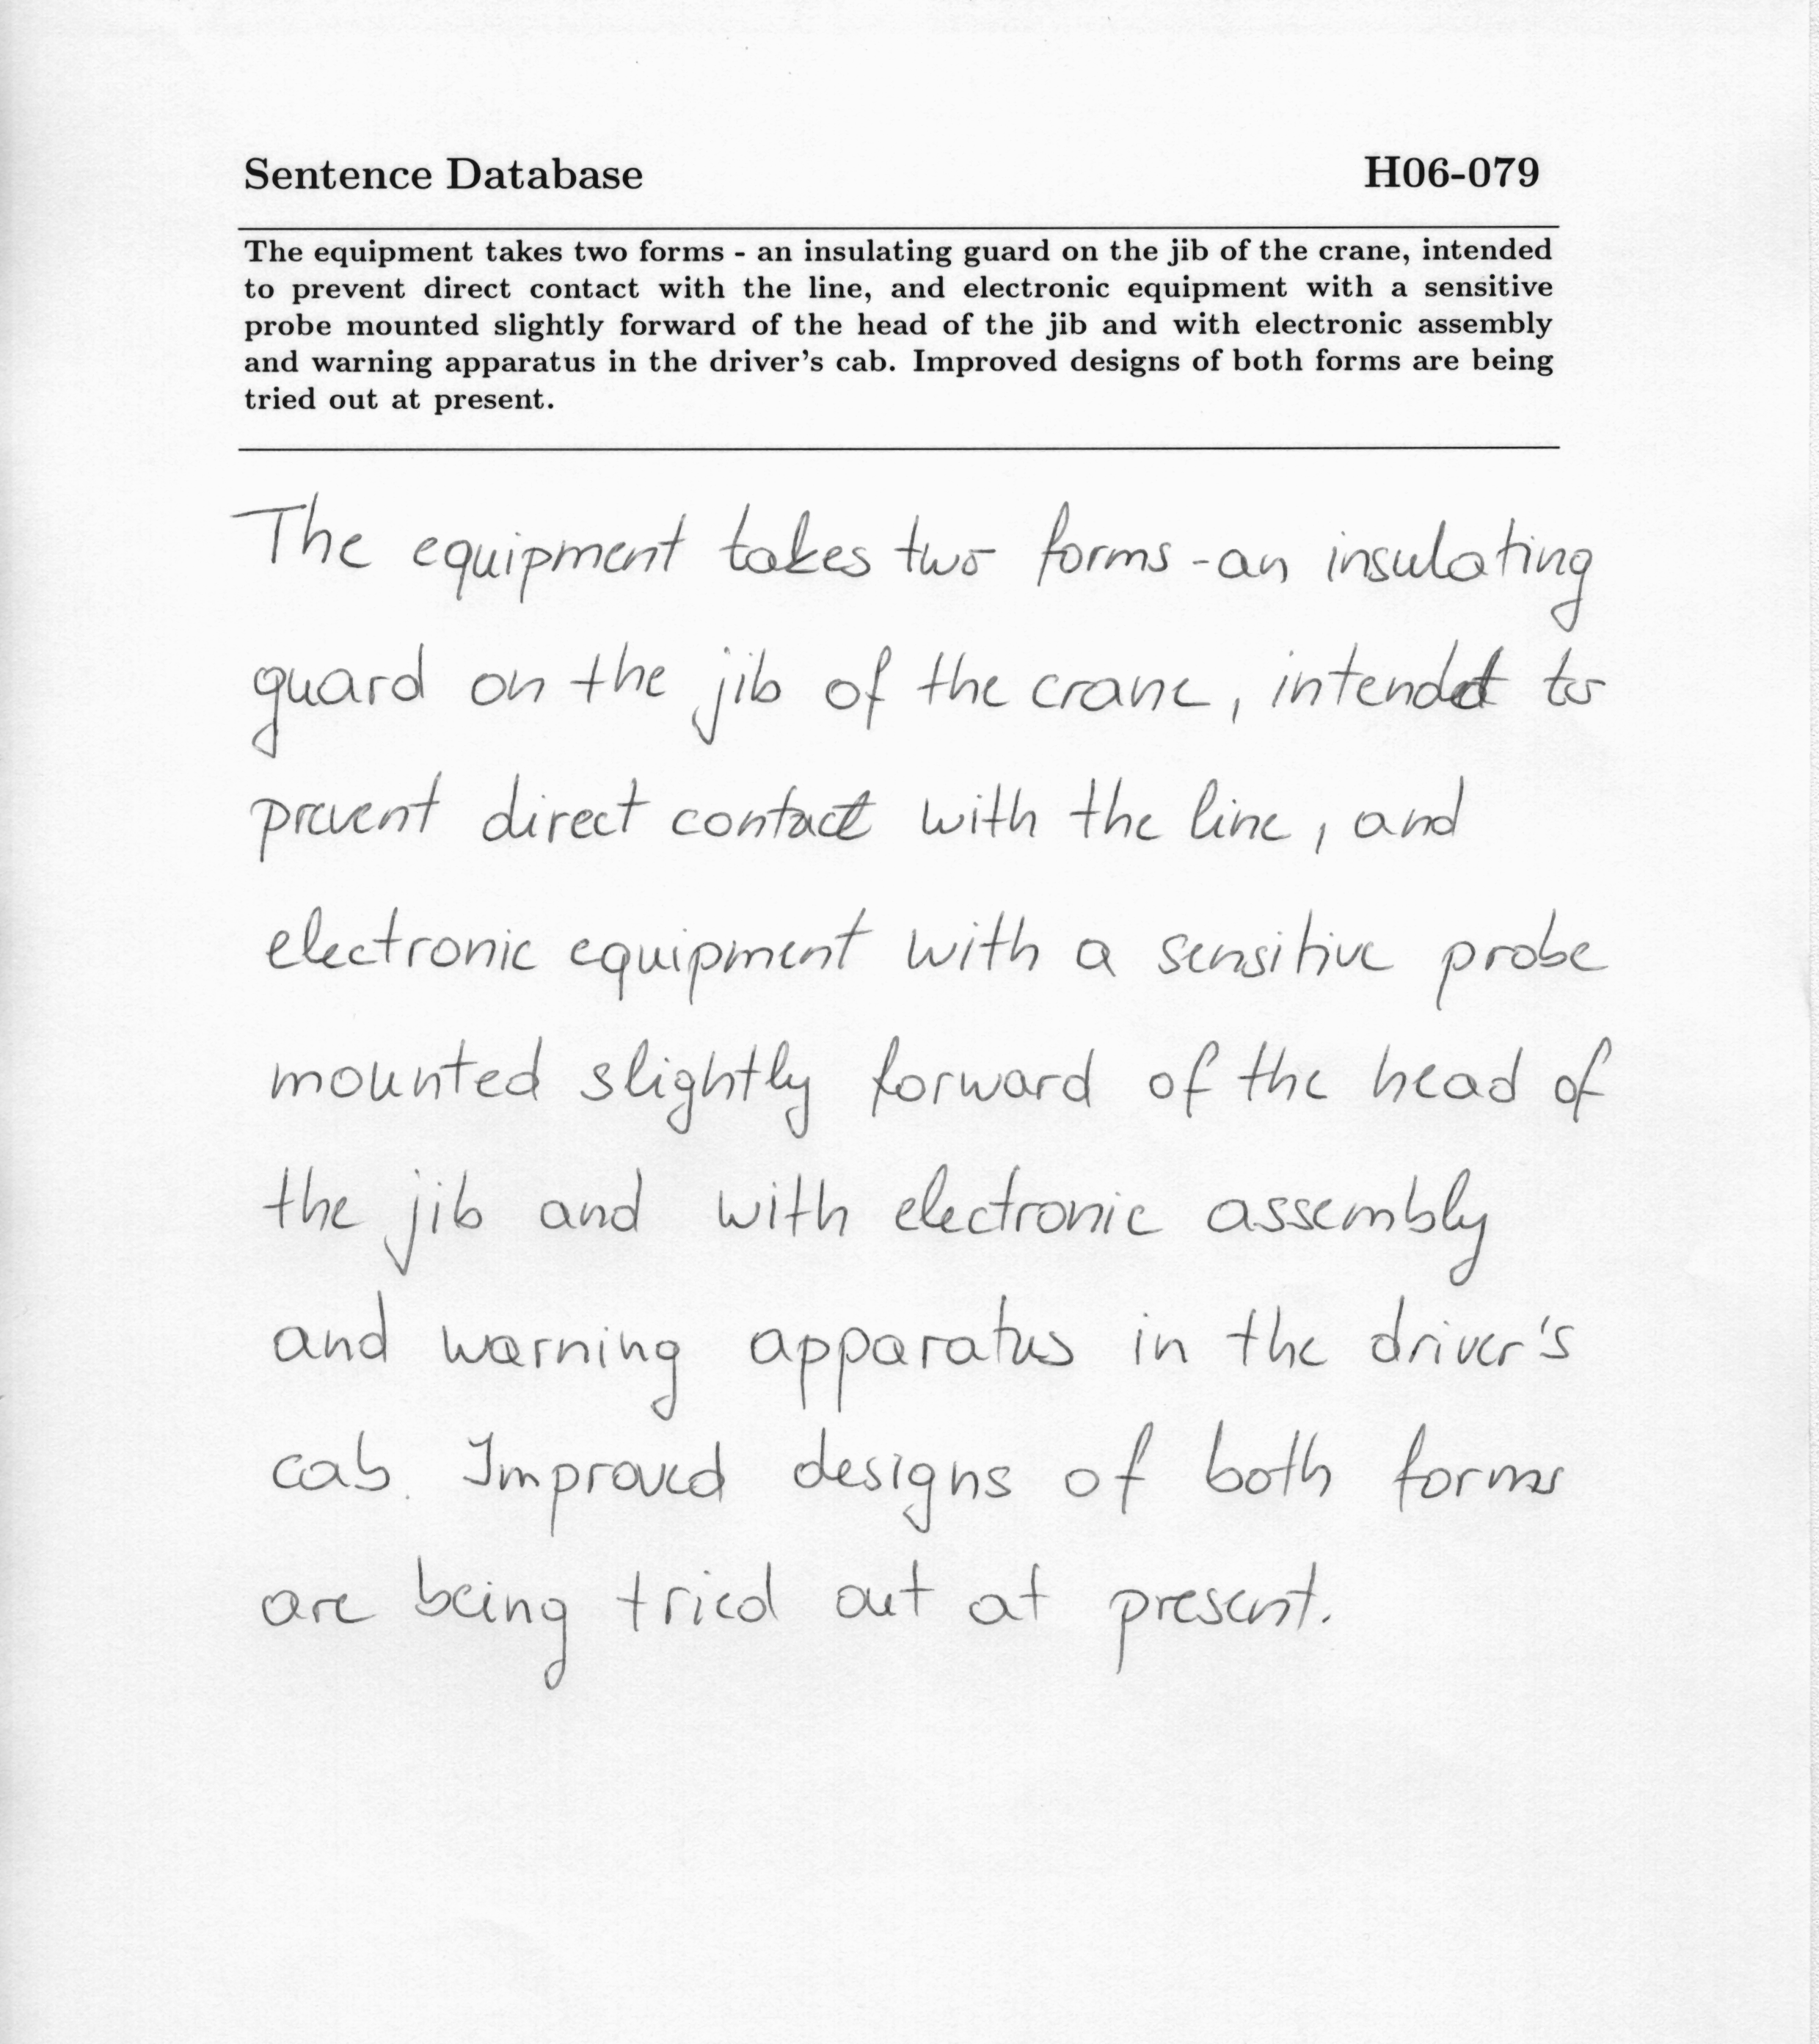 Sentence Database H06-079
The equipment takes two forms - an insulating guard on the jib of the crane, intended
to prevent direct contact with the line, and electronic equipment with a sensitive
probe mounted slightly forward of the head of the jib and with electronic assembly
and warning apparatus in the driver's cab. Improved designs of both forms are being
tried out at present.
The equipment takes two forms - an insulating
guard on the jib of the crane, intended to
prevent direct contact with the line, and
electronic equipment with a sensitive probe
mounted slightly forward of the head of
the jib and with electronic assembly
and warning apparatus in the driver's
cab. Improved designs of both forms
are being tried out at present.